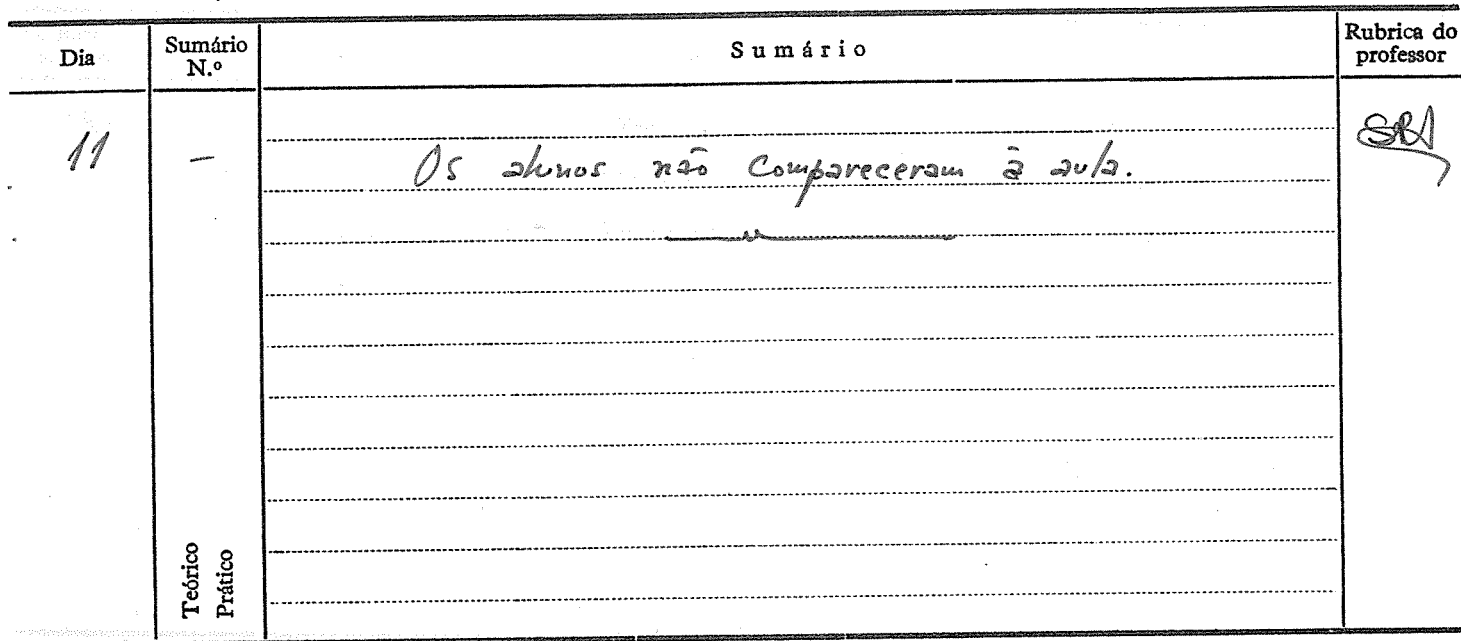 Dia
Sumário
N.º
Sumário
Rubrica do
professor
11
—
Os alunos não compareceram à aula.
Teórico
Prático